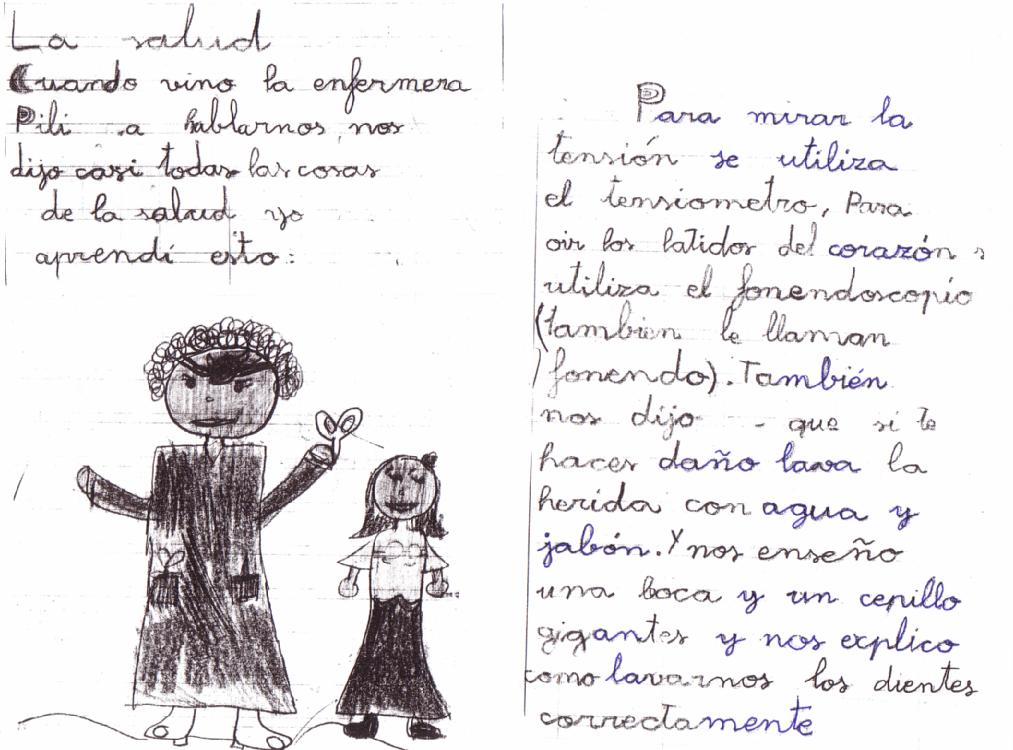 La salud
Cuando vino la enfermera
Pili a hablarnos nos
dijo casi todas las cosas
de la salud yo
aprendí esto:
Para mirar la
tensión se utiliza
el tensiometro, Para
oir los latidos del corazón s
utiliza el fonendoscopio
(tambien le llaman
fonendo). También
nos dijo - que si te
haces daño lava la
herida con agua y
jabón. Y nos enseño
una boca y un cepillo
gigantes y nos explico
como lavarnos los dientes
correctamente